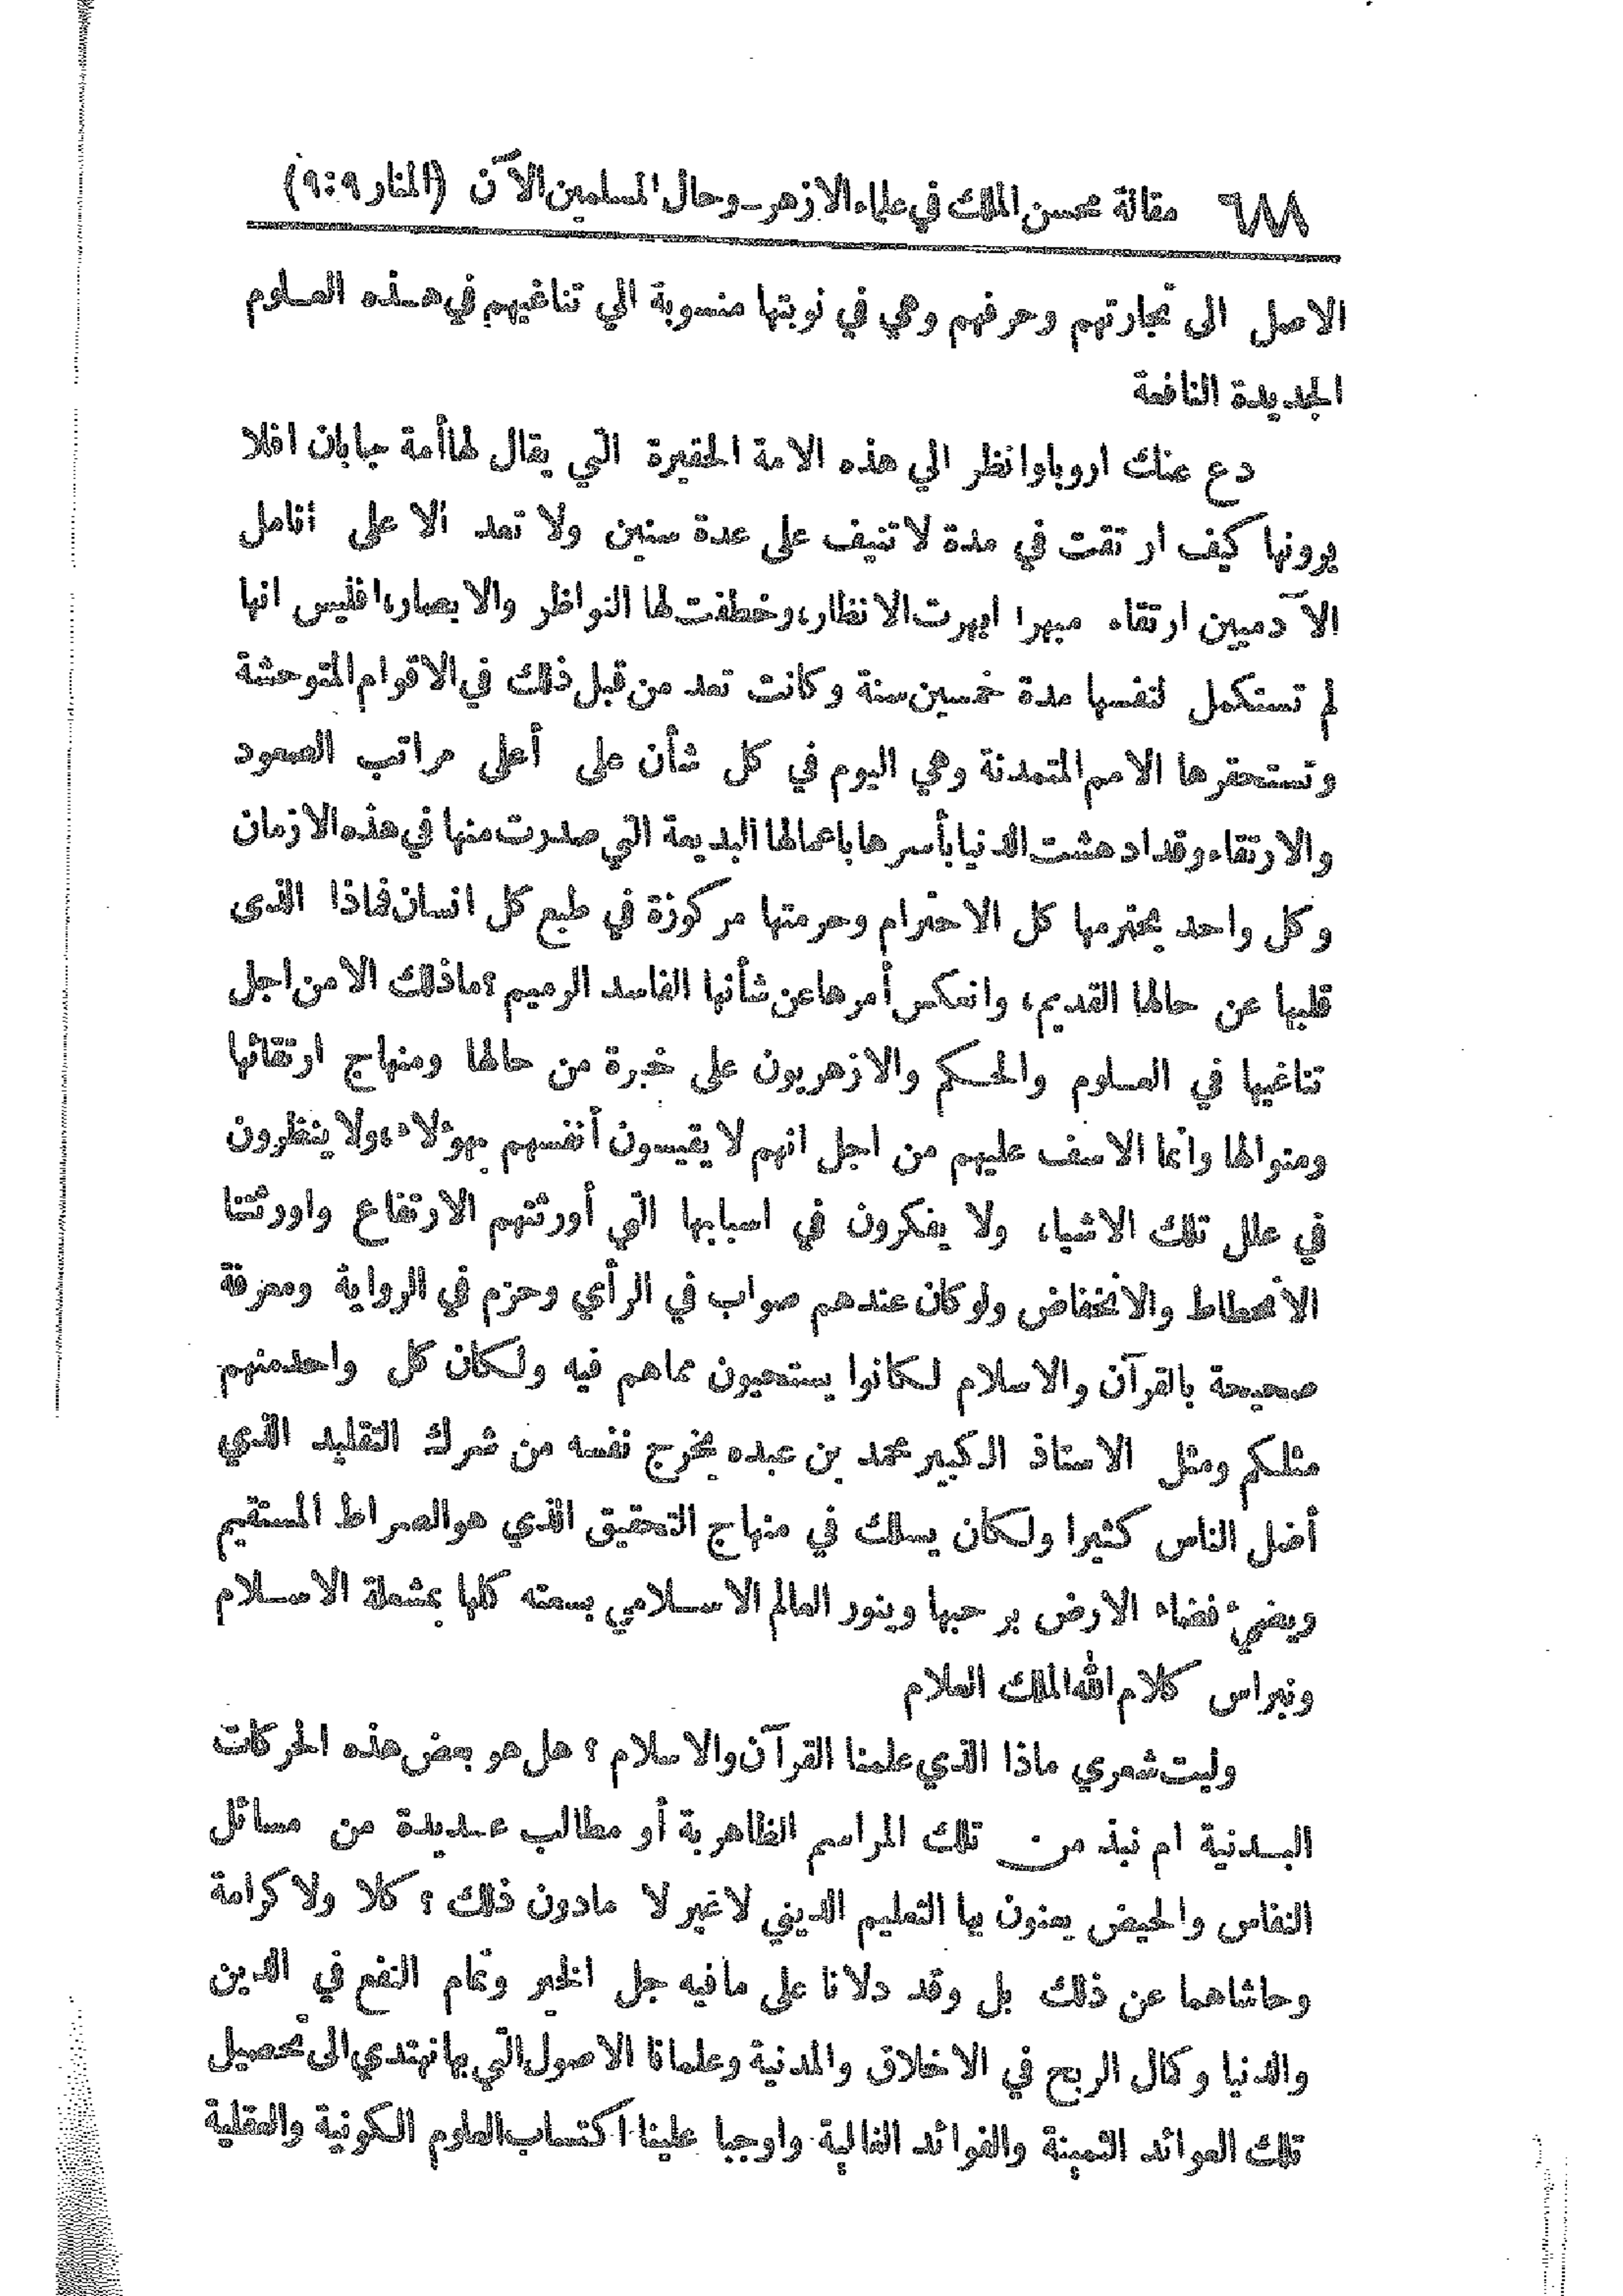 ٦٨٨ مقالة محسن الملك في علماء الازهر ـ وحال المسلمين الآن (المنار ٩:٩)
الاصل الى تجارتهم وحرفهم وهي في نوبتها منسوبة الي تناغيهم في هذه العلوم
الجديدة النافعة
دع عنك اروبا وانظر الي هذه الامة الحقيرة التي يقال لها أمة جابان افلا
يرونها كيف ارتقت في مدة لا تنيف على عدة سنين ولا تعد الا على أنامل
الآدميين ارتقاء مبهرا ابهرت الانظار، وخطفت لها النواظر والابصار، افليس انها
لم تستكمل لنفسها مدة خمسين سنة وكانت تعد من قبل ذلك في الاقوام المتوحشة
وتستحقرها الامم المتمدنة وهي اليوم في كل شأن على أعلى مراتب الصعود
والارتقاء وقد ادهشت الدنيا بأسرها باعمالها البديعة التي صدرت منها في هذه الازمان
وكل واحد يحترمها كل الاحترام وحرمتها مركوزة في طبع كل انسان فماذا الذى
قلبها عن حالها القديم، وانعكس أمرها عن شأنها الفاسد الرميم؟ ماذلك الا من اجل
تناغيها في العلوم والحكم والازهريون على خبرة من حالها ومنهاج ارتقائها
ومنوالها وانما الاسف عليهم من اجل انهم لا يقيسون أنفسهم بهؤلاء، ولا ينظرون
في علل تلك الاشياء ولا يفكرون في اسبابها التي أورثتهم الارتفاع واورثتنا
الانحطاط والانخفاض ولو كان عندهم صواب في الرأي وحزم في الرواية ومعرفة
صحيحة بالقرآن والاسلام لكانوا يستحيون مما هم فيه ولكان كل واحد منهم
مثلكم ومثل الاستاذ الكبير محمد بن عبده يخرج نفسه من شرك التقليد الذي
أضل الناس كثيرا ولكان يسلك في منهاج التحقيق الذي هو الصراط المستقيم
ويضيء فضاء الارض برحبها وينور العالم الاسلامي بسعته كلها بمشعلة الاسلام
ونبراس كلام الله الملك العلام
وليت شعري ماذا الذي علمنا القرآن والاسلام؟ هل هو بعض هذه الحركات
البدنية ام نبذ من تلك المراسم الظاهرية أو مطالب عديدة من مسائل
النفاس والحيض يعنون بها التعليم الديني لاغير لا مادون ذلك؟ كلا ولا كرامة
وحاشاهما عن ذلك بل وقد دلانا على ما فيه جل الخير وتمام النفع في الدين
والدنيا وكمال الربح في الاخلاق والمدنية وعلمانا الاصول التي بها نهتدي الى تحصيل
تلك العوائد الثمينة والفوائد الغالية واوجبا علينا اكتساب العلوم الكونية والعقلية